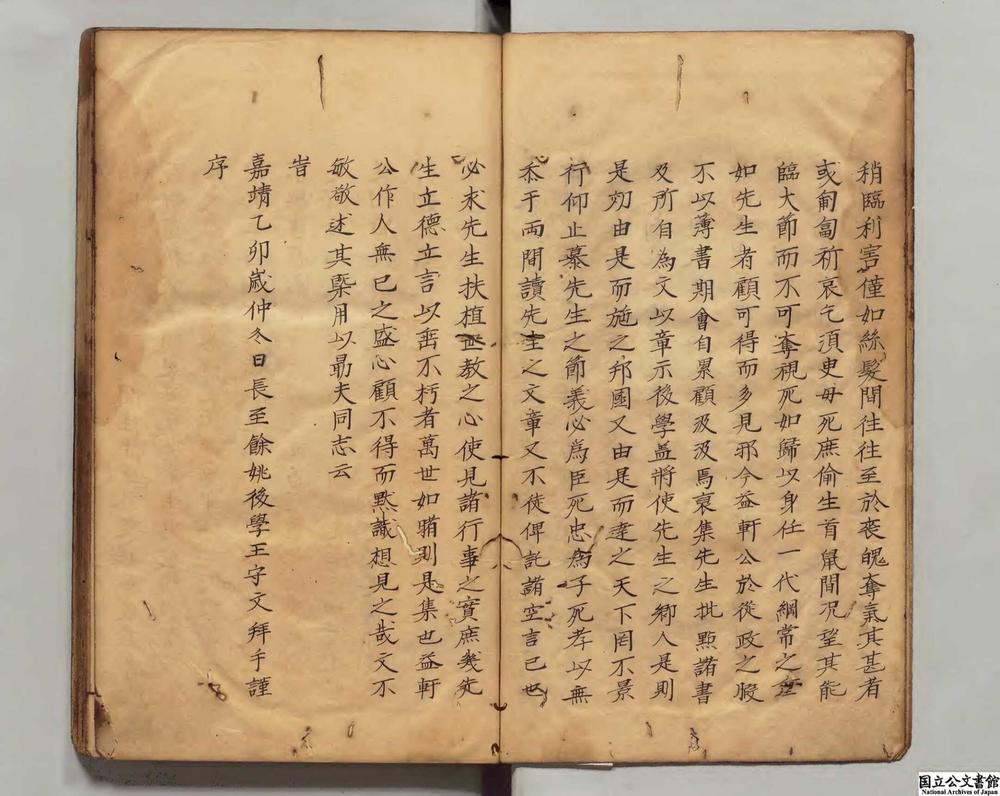 稍臨利害僅如絲髮間往往至於喪魄奪氣其甚者
或匍匐祈哀乞須臾毋死庶偷生首鼠間况望其能
臨大節而不可奪視死如歸以身任一代綱常之重
如先生者顧可得而多見邪今益軒公於從政之暇
不以薄書期會自累顧汲汲焉裒集先生批點諸書
及所自為文以章示後學盖將使先生之鄉人是則
是効由是而施之邦國又由是而達之天下罔不景
行仰止慕先生之節義必為臣死忠為子死孝以無
忝于両間讀先生之文章又不徒俾託諸空言已也
必求先生扶植世教之心使見諸行事之實庶幾先
生立德立言以垂不朽者萬世如猶則是集也益軒
公作人無已之盛心顧不得而黙識想見之哉文不
敏敬述其槩用以勗夫同志云
旹
嘉靖乙卯嵗仲冬日長至餘姚後學王守文拜手謹
序
国立公文書館
National Archives of Japan